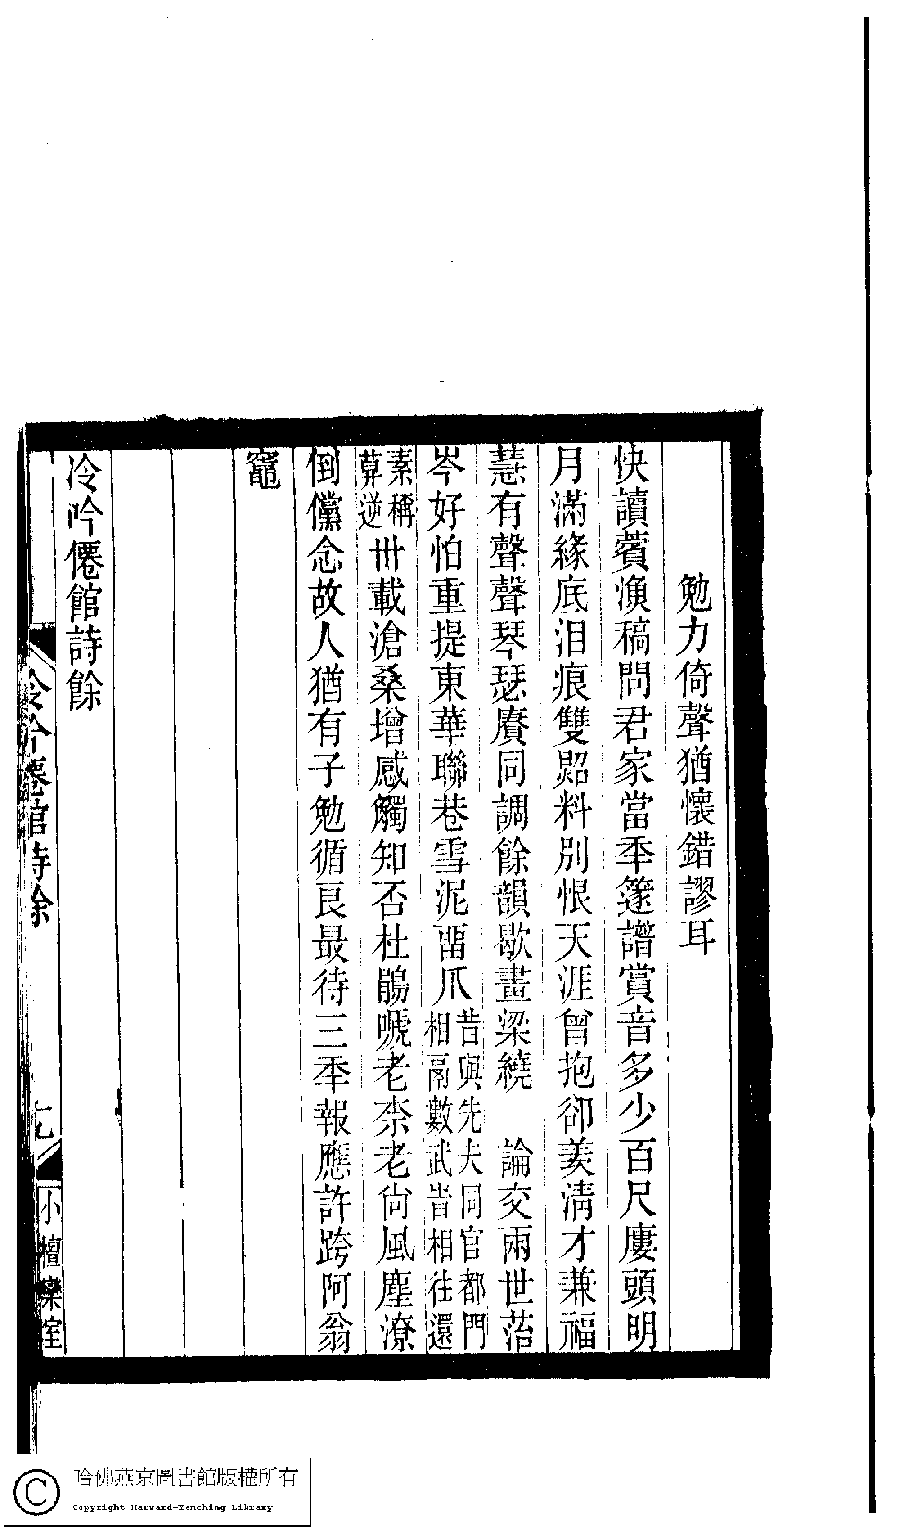 勉力倚聲猶懷錯謬耳
快讀薲漁稿問君家當秊篴譜賞音多少百尺廔頭明
月滿緣底泪痕雙照料別恨天涯曾抱卻羡清才兼福
慧有聲聲琴瑟賡同調餘韻歇畫梁繞　論交兩世苔
岑好怕重提東華聯巷雪泥畱爪昔與先夫同官都門
相鬲數武皆相往還
素稱
莫逆卅載滄桑增感觸知否杜鵑嗁老柰老尙風塵潦
倒儻念故人猶有子勉循良最待三秊報應許跨阿翁
竈
冷吟僊館詩餘
冷吟僊館詩餘
小檀欒室
哈佛燕京圖書館版權所有
Copyright Harvard-Yenching Library